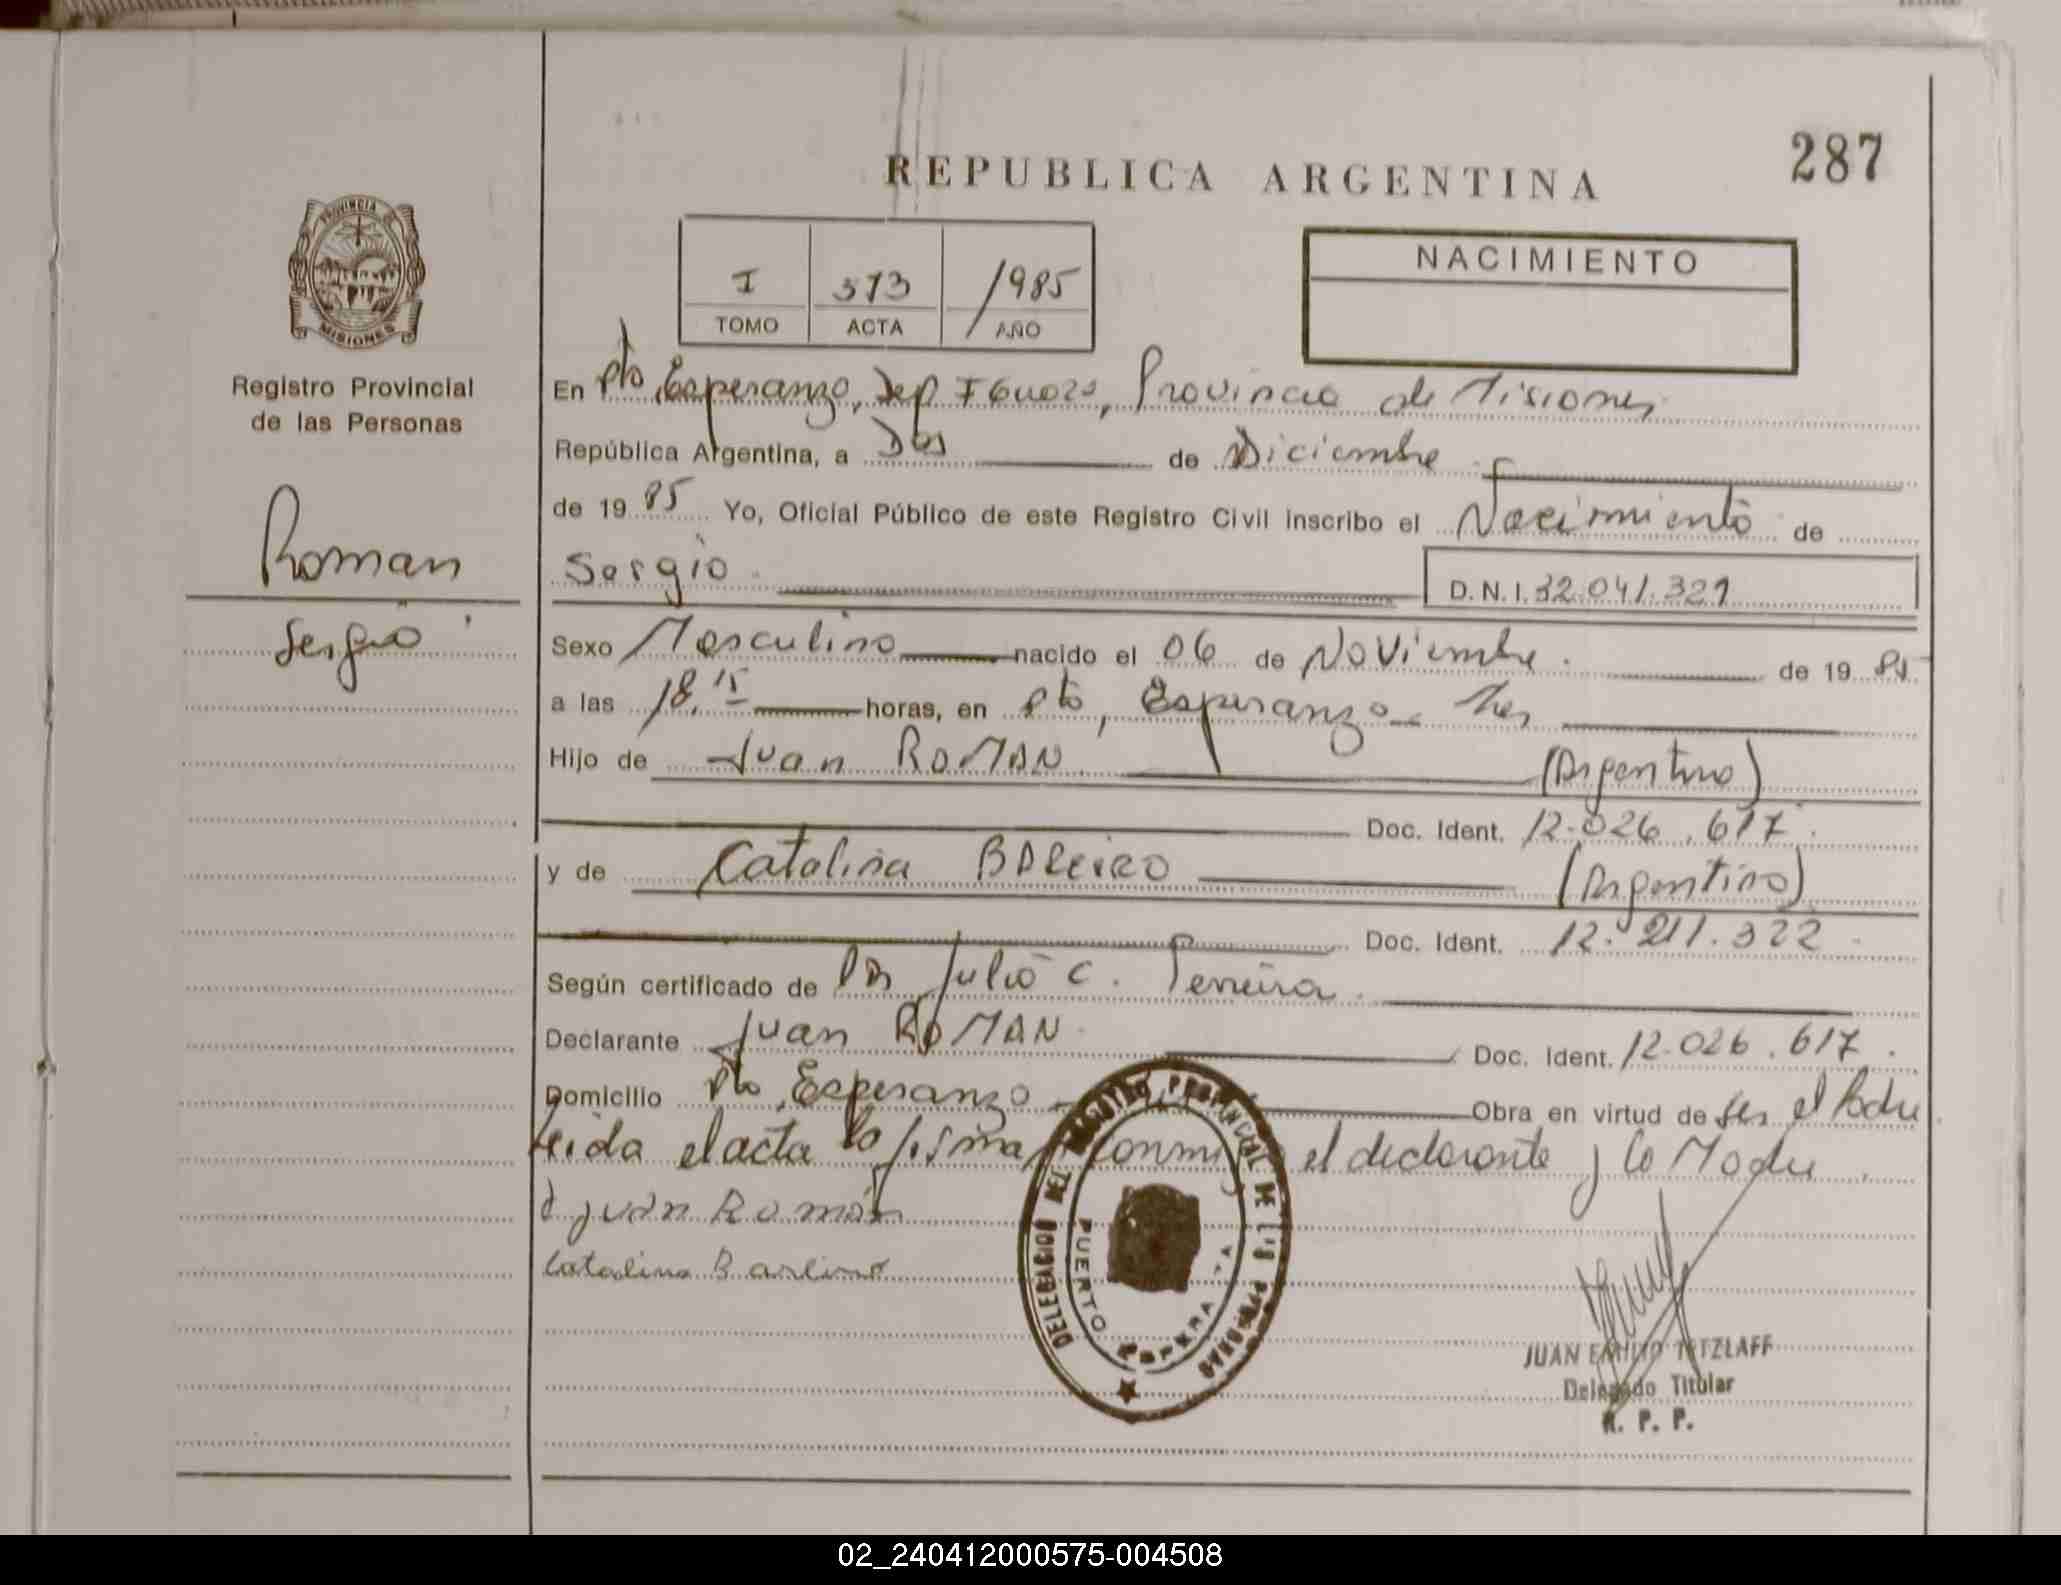 287
REPUBLICA ARGENTINA
PROVINCIA
MISIONES
Registro Provincial
de las Personas
I 373 1985
TOMO ACTA AÑO
NACIMIENTO
En Pto, Esperanza, Dep Iguazu, Provincia de Misiones
República Argentina, a Dos de Diciembre
de 1985 Yo, Oficial Público de este Registro Civil inscribo el Nacimiento de
Roman
Sergio
Sergio
D.N.I. 32.041.321
Sexo Masculino nacido el 06 de Noviembre. de 1985
a las 18,15 horas, en Pto, Esperanza
Hijo de Juan ROMAN (Argentino)
Doc. Ident. 12.026.617.
y de Catalina BAREIRO (Argentina)
Doc. Ident. 12.211.322
Según certificado de Julio C. Pereira.
Declarante Juan ROMAN Doc. Ident. 12.026.617.
Domicilio Pto, Esperanza Obra en virtud de ser el Padre
Leida el acta la firman conmigo el declarante y la Madre.
Juan Román
Catalina Bareiro
DELEGACION DEL REGISTRO PROVINCIAL DE LAS PERSONAS
PUERTO ESPERANZA
JUAN EMILIO TETZLAFF
Delegado Titular
R. P. P.
02_240412000575-004508